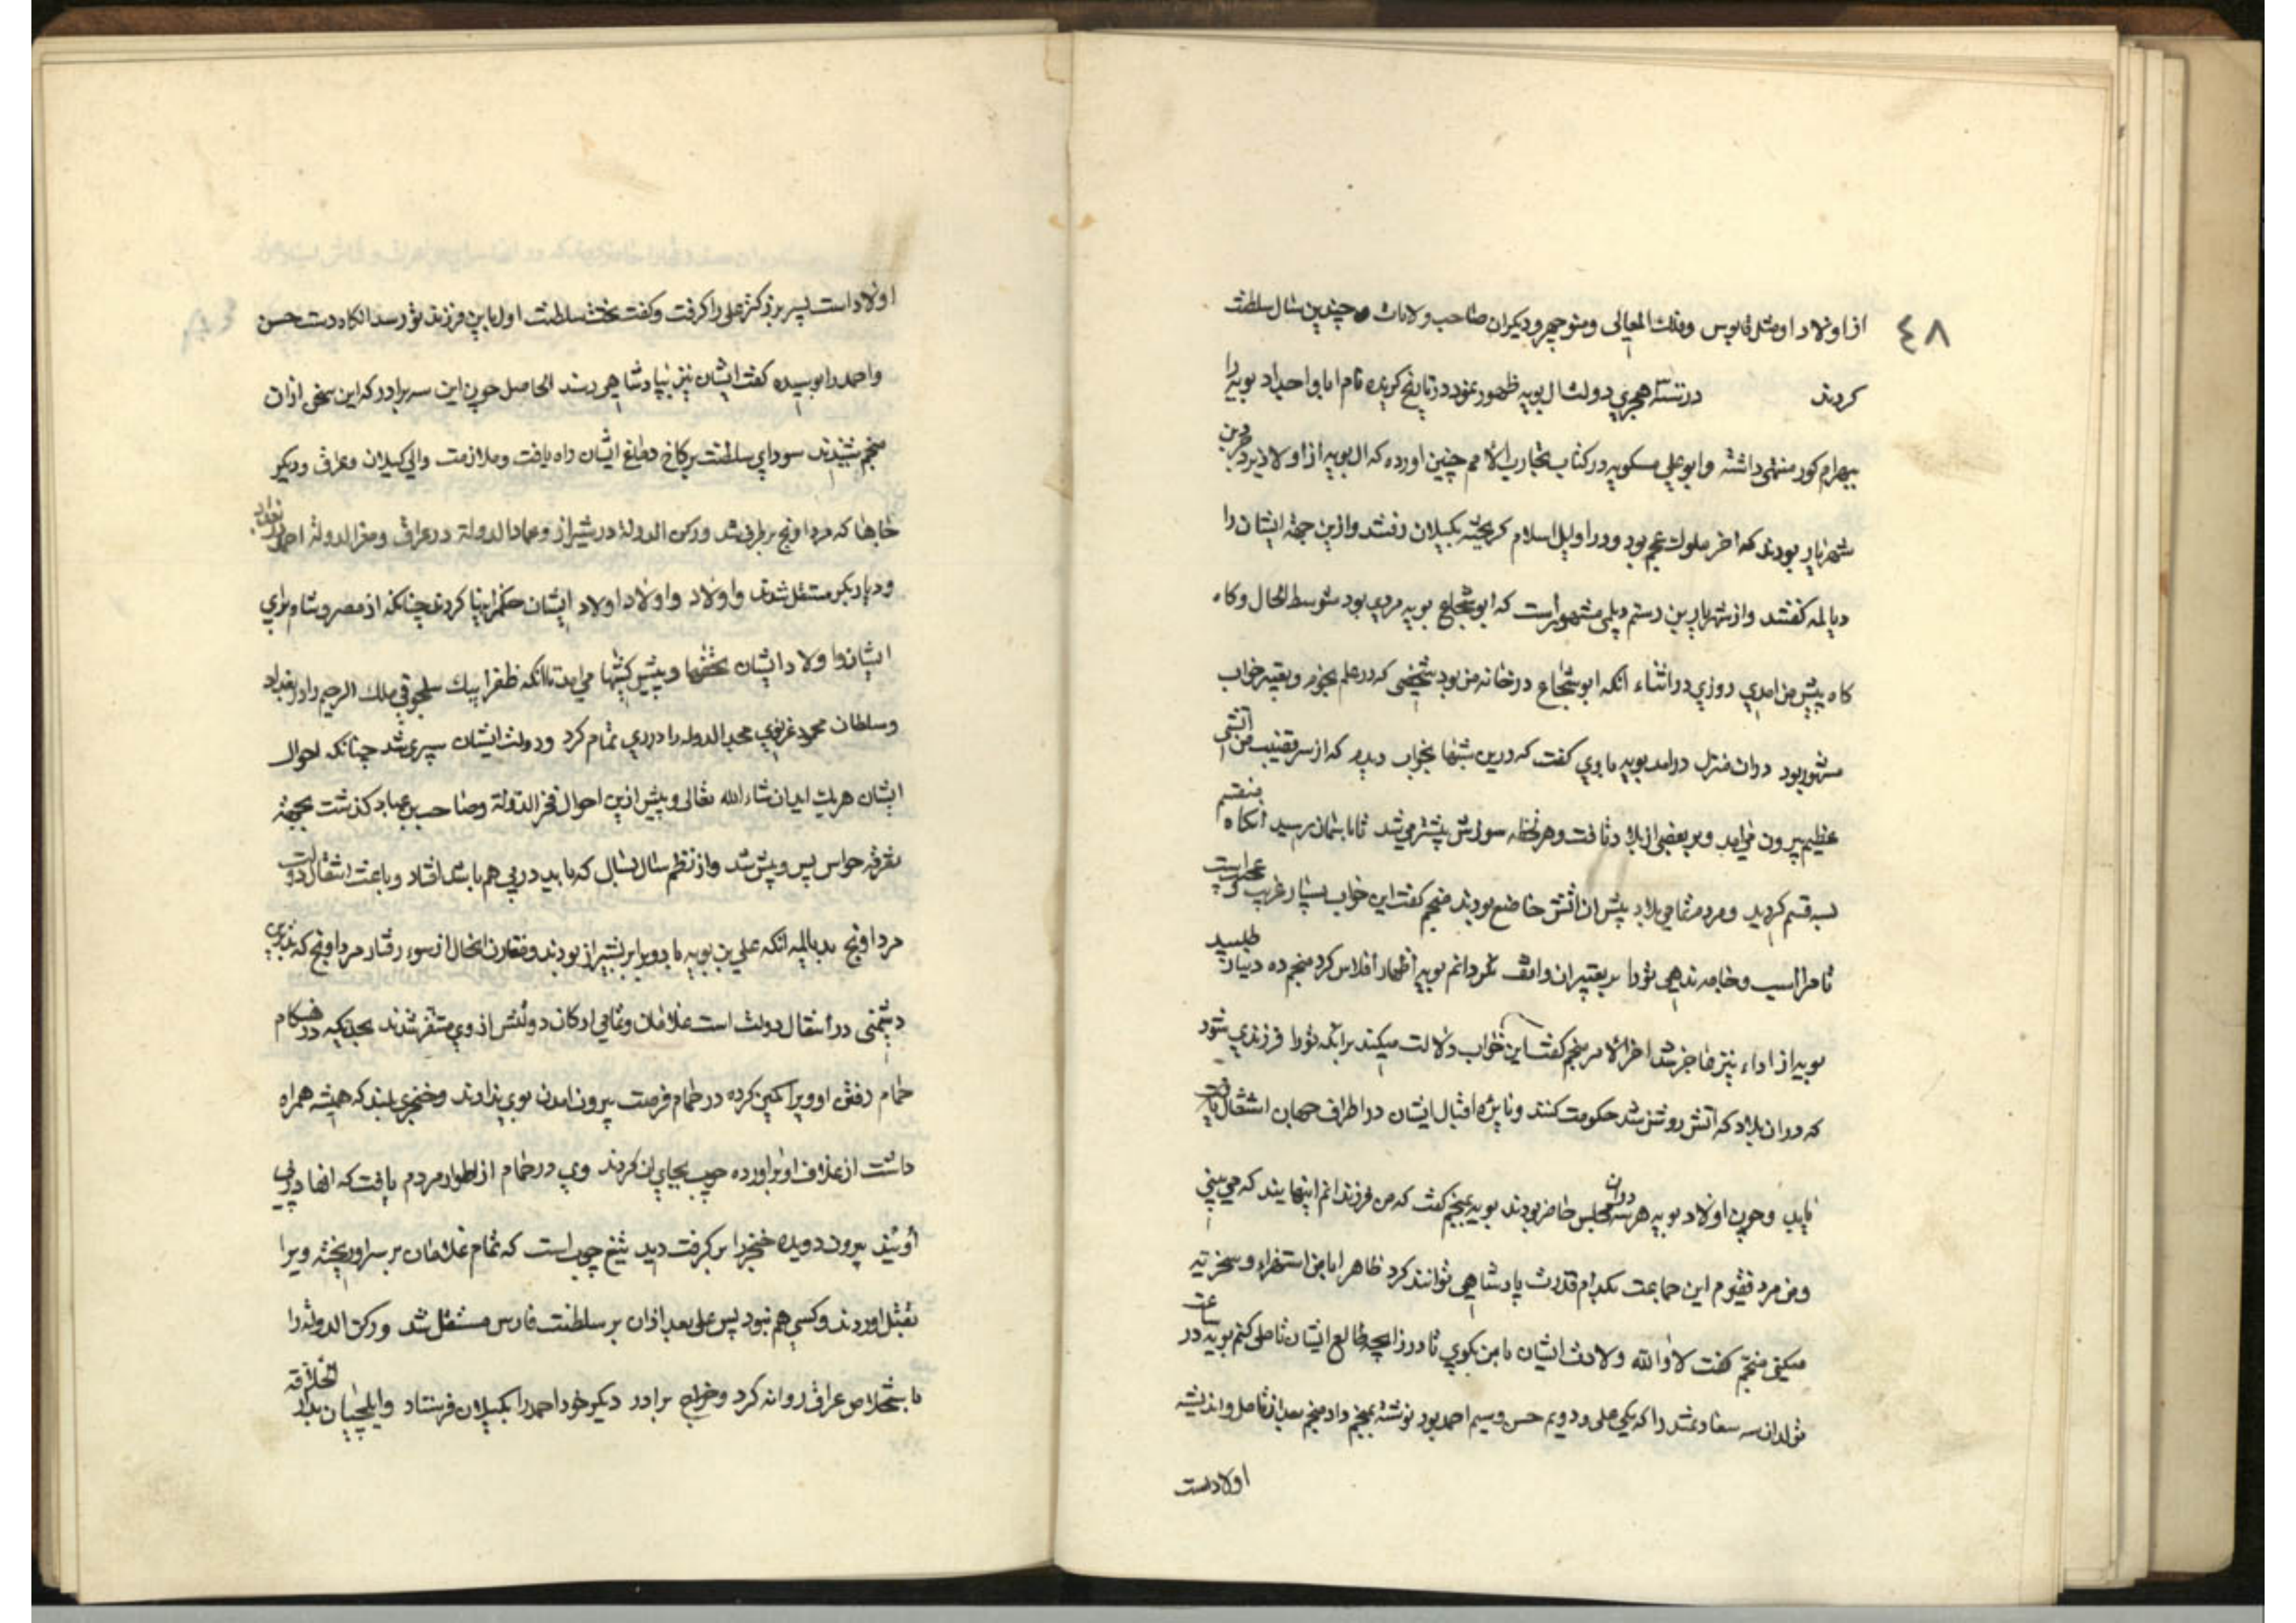 ٤٨
از اولاد او مثل قابوس و فلك المعالی و منوچهر و دیکران صاحب ولایات و چندین سال سلطنت
کردند در سنه هجری دولت ال بویه ظهور نمود در تاریخ کزیده نام ابا و اجداد بویه را
ببهرام کور منتهی داشته و ابو علی مسکویه در کتاب تجارب الامم چنین اورده که ال بویه از اولاد یزدجرد بن
شهریار بودند که اخر ملوك عجم بود و در اوایل اسلام کریخته بکیلان رفتند و ازین جهة ایشان را
دیالمه کفتند و از شهریار بن رستم دیلمی مشهور است که ابو شجاع بویه مردی بود متوسط الحال و کاه
کاه پیش من امدی روزی در اثناء انکه ابو شجاع در خانه من بود شخصی که در علم نجوم و تعبیر خواب
مشهور بود در ان منزل درامد بویه با وی کفت که درین شبها بخواب دیدم که از سر قضیب من اتشی
عظیم بیرون می امد و بر بعضی از بلاد تافت و هر لحظه سوزش بیشتر می شد تا باسمان رسید انکاه منقسم
بسه قسم کردید و مردم تمامی بلاد پیش ان اتش خاضع بودند منجم کفت این خواب بسیار غریب و عجیب است
تا مرا اسب و جامه ندهی تو را بر تعبیر ان واقف نکردانم بویه اظهار افلاس کرد منجم ده دینار طلبید
بویه از اداء نیز عاجز شد اخر الامر منجم کفت این خواب دلالت میکند بر انکه تو را فرزندی شود
که در ان بلاد که اتش روشن شد حکومت کنند و نایره اقبال ایشان در اطراف جهان اشتعال یابد
یابد و چون اولاد بویه هر سه در ان مجلس حاضر بودند بویه بمنجم کفت که من فرزندانم اینهایند که می بینی
و من مرد فقیرم این جماعت بکدام قدرت پادشاهی توانند کرد ظاهرا با من استهزاء و سخریه
میکنی منجم کفت لا والله ولادت ایشان با من بکوی تا در زایجه طالع ایشان تاملی کنم بویه ساعت در
تولد ان سه سعادتمند را که یکی علی و دویم حسن و سیم احمد بود نوشته بمنجم داد منجم بعد از تامل و اندیشه
اولادست
اولاد است پسر بزرکتر علی را کرفت و کفت تخت سلطنت اول باین فرزند تو رسد انکاه دست حسن
و احمد را بوسیده کفت ایشان نیز بپادشاهی رسند الحاصل چون این سه برادر که این سخن از ان
منجم شنیدند سودای سلطنت بر کاخ دماغ ایشان راه یافت و ملازمت والی کیلان و عراق و دیکر
جاها که مرداونج بر طرف شد و رکن الدوله در شیراز و عماد الدوله در عراق و معز الدوله احمد در بغداد
و دیار بکر مستقل شدند و اولاد و اولاد اولاد ایشان حکمرانیها کردند چنانکه از مصر و شام برای
ایشان و اولاد ایشان تحفها و پیش کشها می امد تا انکه طغرا بیك سلجوقی ملك الرحیم را در بغداد
و سلطان محمود غزنوی مجد الدوله را در ری تمام کرد و دولت ایشان سپری شد چنانکه احوال
ایشان هر یك اید ان شاء الله تعالی و پیش ازین احوال فخر الدوله و صاحب بن عباد کذشت بجهة
تفرقه حواس پس و پیش شد و از نظم سال بسال که باید در پی هم باشد افتاد و باعث انتقال دولت
مرداونج بدیالمه انکه علی بن بویه با دو برادر بشیراز بودند و مقارن انحال از سوء رفتار مرداونج که
دشمنی در انتقال دولت است غلامان و تمامی ارکان دولتش از وی متنفر شدند بحدیکه در هنکام
حمام رفتن او ویرا کمین کرده در حمام فرصت بیرون امدن بوی ندادند و خنجری بلند که همیشه همراه
داشت از غلاف او براورده چوب بجای ان کردند وی در حمام از اطوار مردم یافت که انها در پی
اویند بیرون دویده خنجر را بر کرفت دید تیغ چوب است که تمام غلامان بر سر او ریخته ویرا
بقتل اوردند و کسی هم نبود پس علی بعد از ان بر سلطنت فارس مستقل شد و رکن الدوله را
باستخلاص عراق روانه کرد و برادر دیکر خود احمد را بکیلان فرستاد و ایلچیان بدار الخلافه